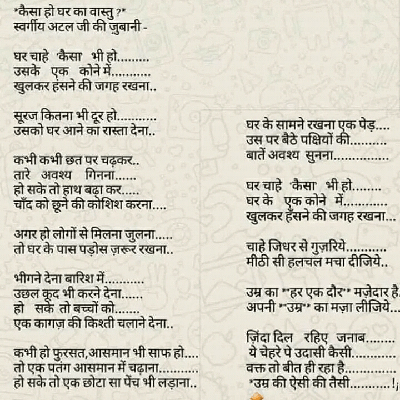 *कैसा हो घर का वास्तु ?*
स्वर्गीय अटल जी की जुबानी -
घर चाहे 'कैसा' भी हो.........
उसके एक कोने में...........
खुलकर हंसने की जगह रखना..
सूरज कितना भी दूर हो...........
उसको घर आने का रास्ता देना..
कभी कभी छत पर चढ़कर..
तारे अवश्य गिनना......
हो सके तो हाथ बढ़ा कर.....
चाँद को छूने की कोशिश करना....
अगर हो लोगों से मिलना जुलना.....
तो घर के पास पड़ोस ज़रूर रखना..
भीगने देना बारिश में...........
उछल कूद भी करने देना......
हो सके तो बच्चों को.......
एक कागज़ की किश्ती चलाने देना..
कभी हो फुरसत,आसमान भी साफ हो....
तो एक पतंग आसमान में चढ़ाना...........
हो सके तो एक छोटा सा पेंच भी लड़ाना..
घर के सामने रखना एक पेड़....
उस पर बैठे पक्षियों की..........
बातें अवश्य सुनना...............
घर चाहे 'कैसा' भी हो........
घर के एक कोने में............
खुलकर हँसने की जगह रखना...
चाहे जिधर से गुज़रिये...........
मीठी सी हलचल मचा दीजिये..
उम्र का *"हर एक दौर"* मज़ेदार है.
अपनी *"उम्र"* का मज़ा लीजिये...
ज़िंदा दिल रहिए जनाब........
ये चेहरे पे उदासी कैसी............
वक्त तो बीत ही रहा है..............
*उम्र की ऐसी की तैसी...........!¡